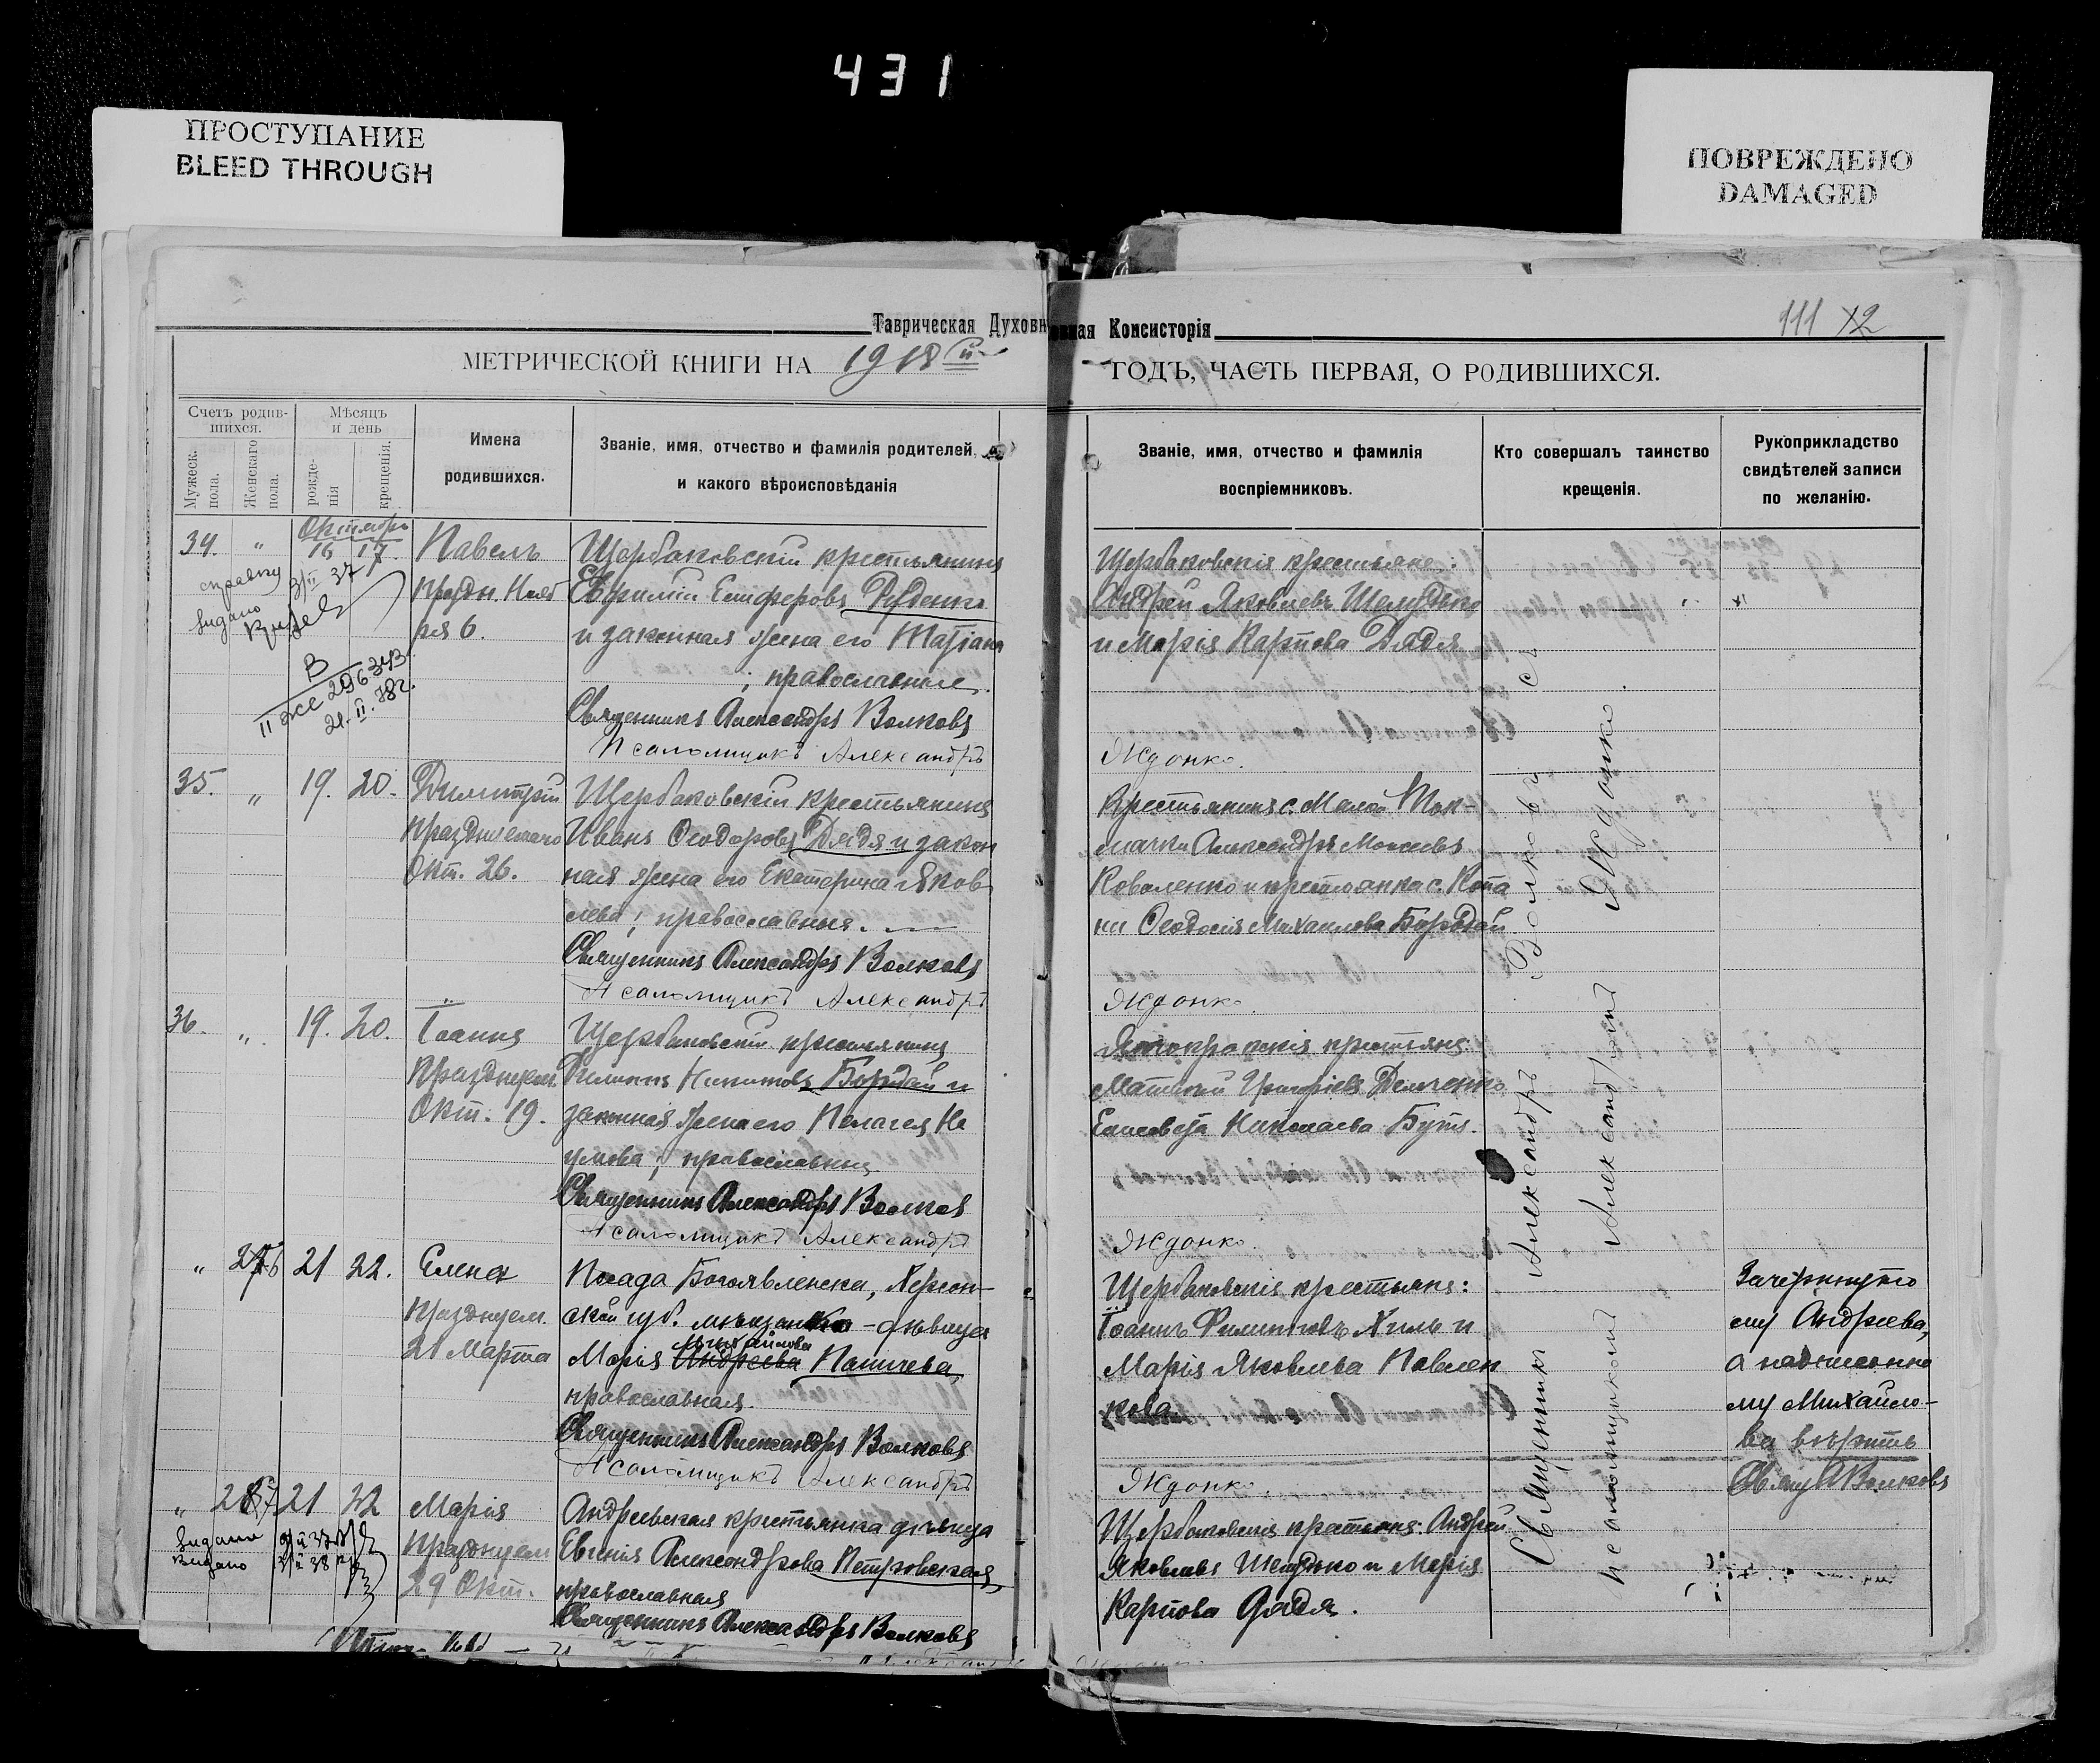 431
ПРОСТУПАНИЕ
BLEED THROUGH
ПОВРЕЖДЕНО
DAMAGED
Таврическая Духовн
овная Консисторія
111 12
МЕТРИЧЕСКОЙ КНИГИ НА 1918 й
ГОДЪ, ЧАСТЬ ПЕРВАЯ, О РОДИВШИХСЯ.
Счетъ родив-
шихся.
Мужеск.
пола.
Женскаго
пола.
Мѣсяцъ
и день
рожде-
нія
крещенія.
Имена
родившихся.
Званіе, имя, отчество и фамилія родителей, и
и какого вѣроисповѣданія
Званіе, имя, отчество и фамилія
воспріемниковъ.
Кто совершалъ таинство
крещенія.
Рукоприкладство
свидѣтелей записи
по желанію.
Октябрь
34. „ 16 17.
Павелъ
Праздн. Нояб
ря 6.
справку
выдано
В
II же 296343
21.II.38г.
Щербаковскій крестьянинъ
Евфимій Елиферовъ Руденко
и законная жена его Татіана
; православные.
Священникъ Александръ Волковъ
Псаломщикъ Александръ
Щербаковскія крестьяне:
Андрей Яковлевъ Шелудько
и Марія Карпова Дядя
Ждонко.
35. „ 19. 20.
Димитрій
Празднуемаго
Окт. 26.
Щербаковскій крестьянинъ
Иванъ Ѳеодоровъ Дядя и закон
ная жена его Екатерина Яков
лева; православные.
Священникъ Александръ Волковъ
Псаломщикъ Александръ
Крестьянинъ с. Малой Ток-
мачки Александръ Моисеевъ
Коваленко и крестьянка с. Копа
ни Ѳеодосія Михаилова Бородай
Ждонко.
36. „ 19. 20.
Іоаннъ
Празднуем.
Окт. 19.
Щербаковскій крестьянинъ
Филиппъ Никитовъ Бородай и
законная жена его Пелагея На
умова; православные
Священникъ Александръ Волковъ
Псаломщикъ Александръ
крестьяне
Матвей Григоріевъ Демченко
Елисавета Николаева Бутъ.
Ждонко.
„ 26 21 22.
Елена
Празднуем.
21 Марта
Посада Богоявленска, Херсон-
ской губ. мѣщанка-дѣвица
Михайлова
Марія Андреева Паничева,
православная.
Священникъ Александръ Волковъ
Псаломщикъ Александръ
Щербаковскія крестьяне:
Іоаннъ Филипповъ Хиль и
Марія Яковлева Павлен
кова
Ждонко.
Зачеркнуто
му Андреева,
а надписанно
му Михайло-
ва вѣрить
Свящ А Волковъ
„ 27 21 22
Марія
Празднуем
29 Окт.
выдано 9/II 37
выдано 21/II 38
Андреевская крестьянка дѣвица
Евгенія Александрова Петровская,
православная
Священникъ Александръ Волковъ
Щербаковскія крестьяне: Андрей
Яковлевъ Шелудько и Марія
Карпова Дядя.
Священникъ Александръ Волковъ съ
псаломщикомъ Александромъ Ждонко.